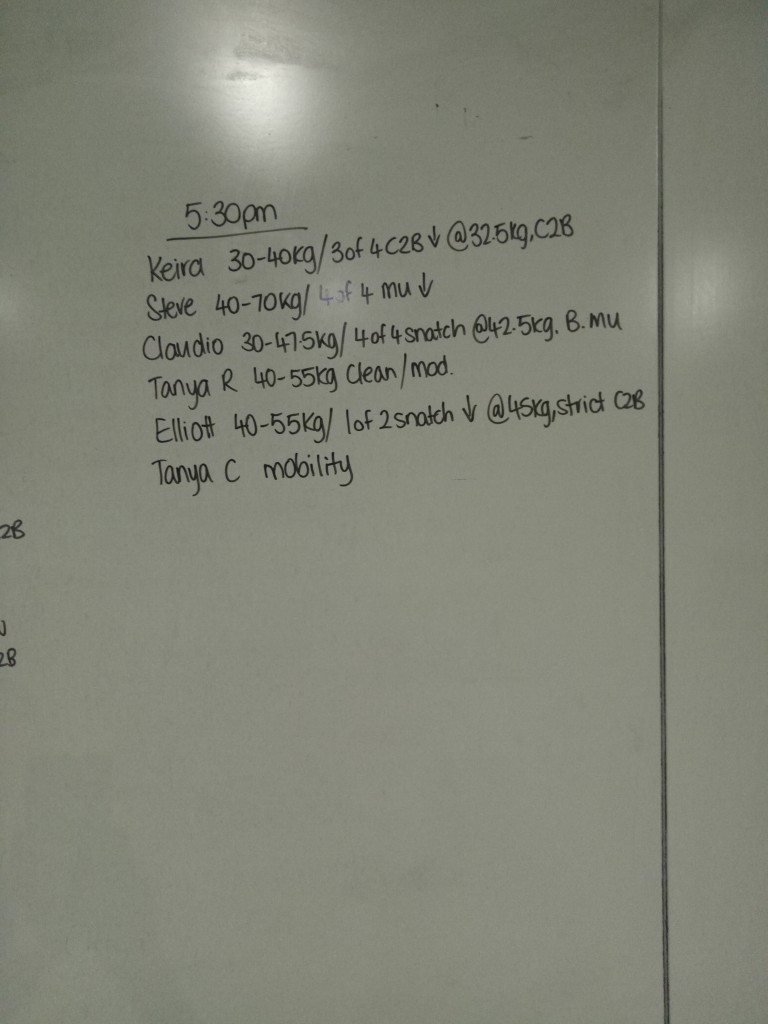 5:30pm
Keira 30-40kg/3of 4 C2B↓ @32.5kg, C2B
Steve 40-70kg/ 4 of 4 mu↓
Claudio 30-47.5kg/ 4of 4 snatch @42.5kg. B.mu
Tanya R 40-55kg Clean/mod.
Elliott 40-55kg/ 1of 2 snatch ↓ @45kg, strict C2B
Tanya C mobility
2B
2B